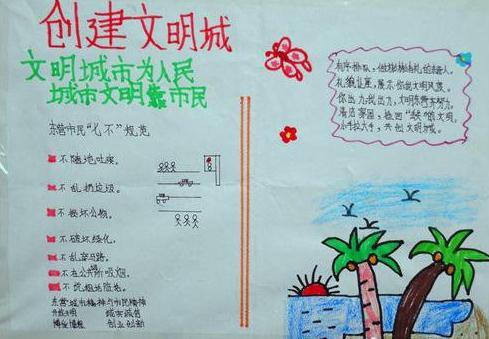 创建文明城
文明城市为人民
城市文明靠市民
东营市民“七不”规范
不随地吐痰。
不乱扔垃圾。
不损坏公物。
不破坏绿化。
不乱穿马路。
不在公共场所吸烟。
不说粗话脏话。
东营城市精神与市民精神
开放文明 诚实诚信
博纳博程 创业创新
有序排队，做彬彬有礼的东营人。
礼貌让座，展示你我文明风采。
你出力我出力，文明东营齐努力。
清洁家园，捡回“缺失”的文明。
小手拉大手，共创文明城。